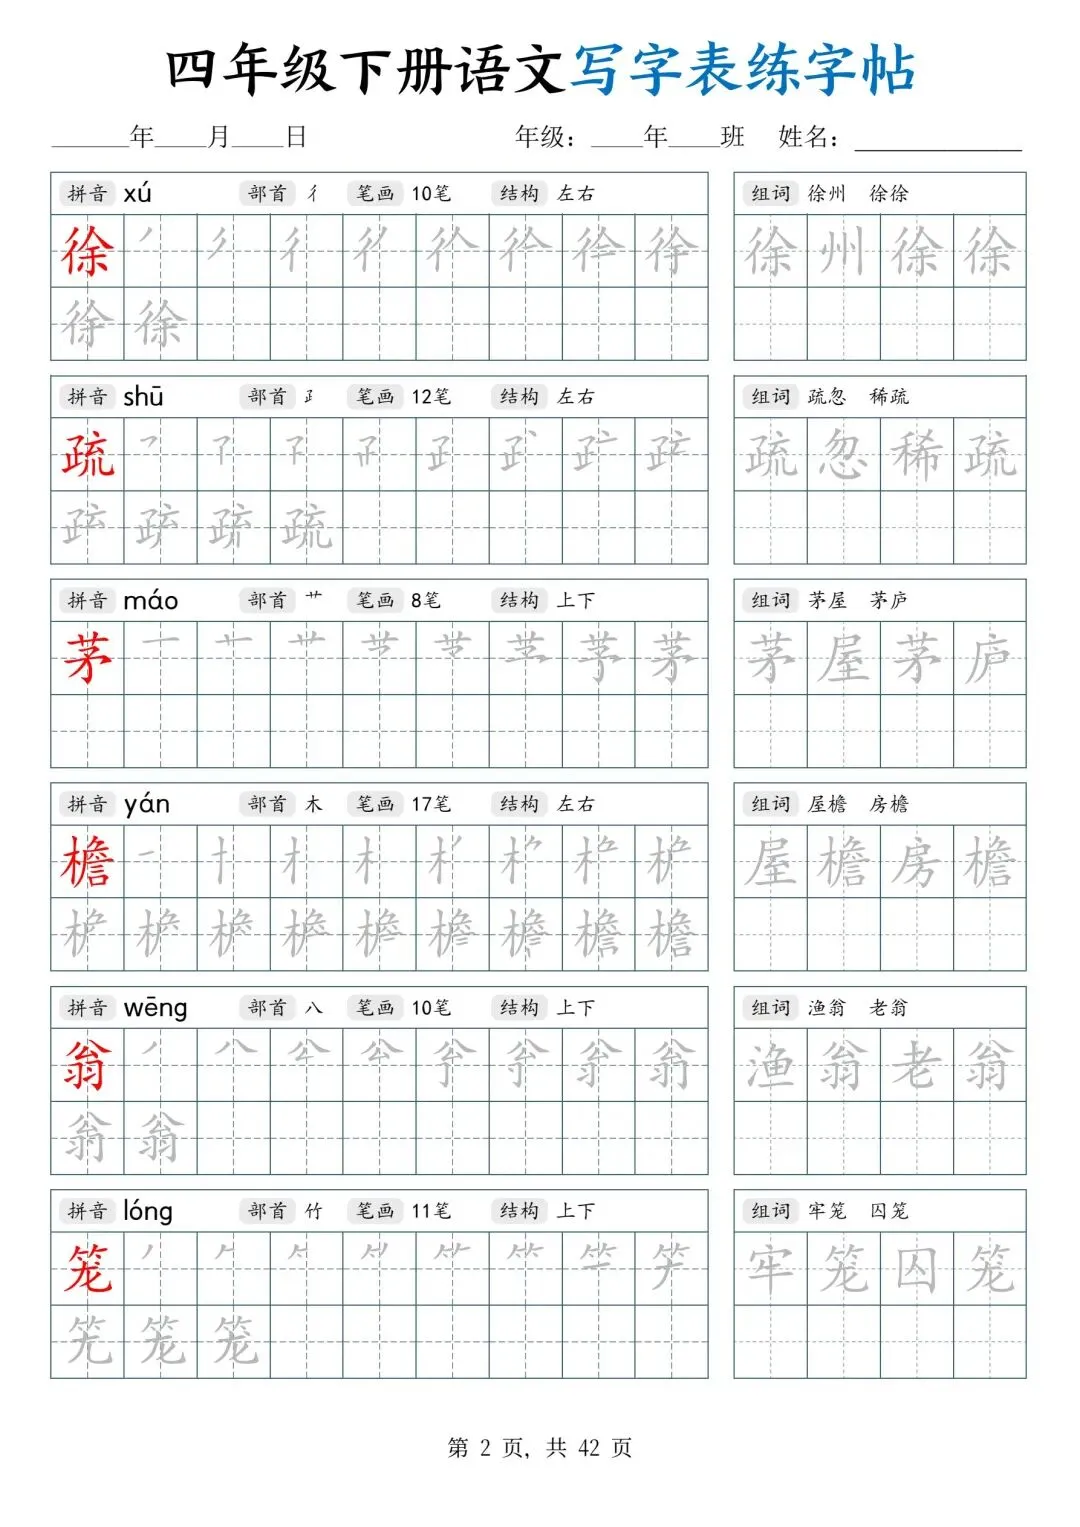 四年级下册语文写字表练字帖
______年____月____日 年级：____年____班 姓名：_____________
拼音 xú 部首 彳 笔画 10笔 结构 左右
徐
徐 徐
组词 徐州 徐徐
徐 州 徐 徐
拼音 shū 部首 𤴔 笔画 12笔 结构 左右
疏
疏
组词 疏忽 稀疏
疏 忽 稀 疏
拼音 máo 部首 艹 笔画 8笔 结构 上下
茅 茅
组词 茅屋 茅庐
茅 屋 茅 庐
拼音 yán 部首 木 笔画 17笔 结构 左右
檐
檐
组词 屋檐 房檐
屋 檐 房 檐
拼音 wēng 部首 八 笔画 10笔 结构 上下
翁
翁 翁
组词 渔翁 老翁
渔 翁 老 翁
拼音 lóng 部首 竹 笔画 11笔 结构 上下
笼
笼 笼
组词 牢笼 囚笼
牢 笼 囚 笼
第 2 页, 共 42 页